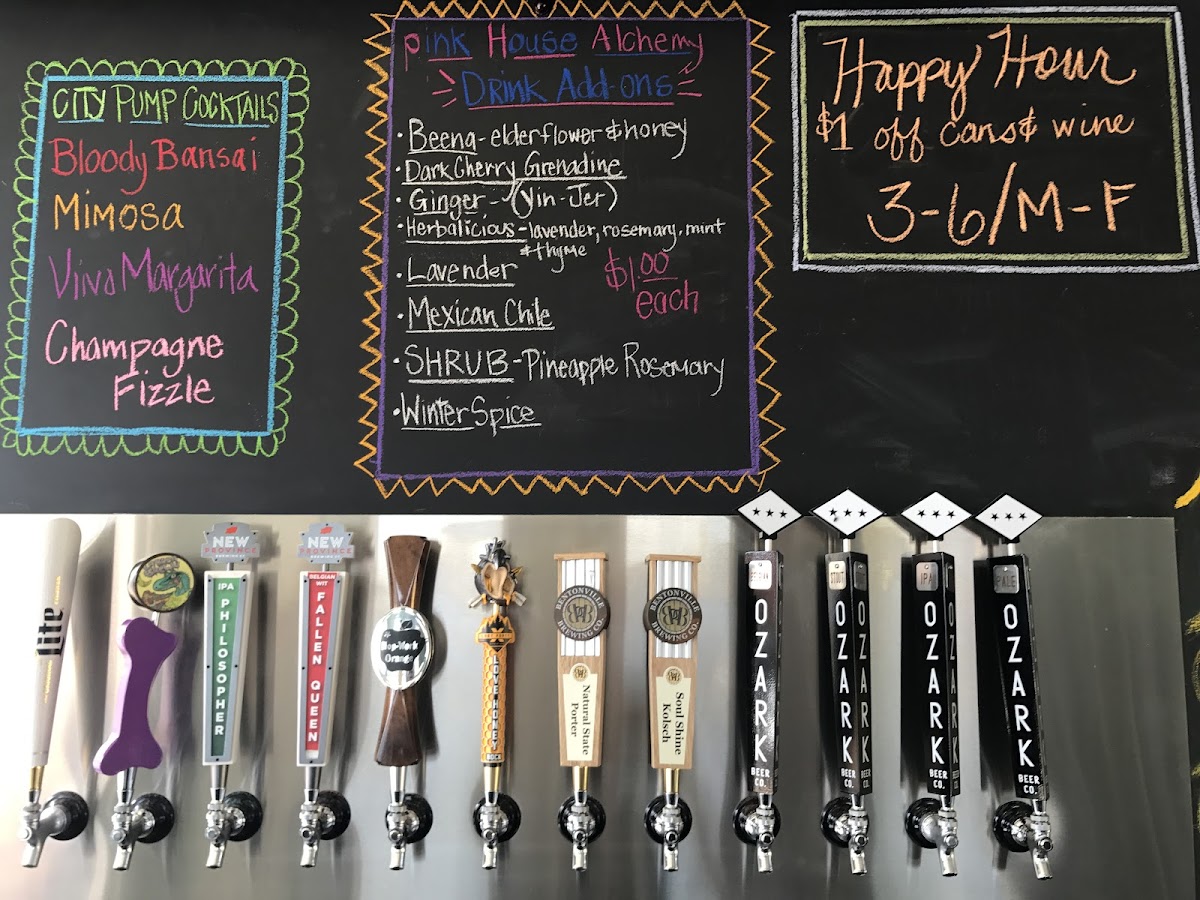 CITY PUMP COCKTAILS
Bloody Bansai
Mimosa
Viva Margarita
Champagne
Fizzle
Pink House Alchemy
Drink Add-ons
• Beena - elderflower & honey
• Dark Cherry Grenadine
• Ginger - (Yin-Jer)
• Herbalicious - lavender, rosemary, mint
& thyme
• Lavender
$1.00
each
• Mexican Chile
• SHRUB - Pineapple Rosemary
• Winter Spice
Happy Hour
$1 off cans & wine
3-6/M-F
lite
NEW
PROVINCE
IPA
PHILOSOPHER
NEW
PROVINCE
BELGIAN
WIT
FALLEN QUEEN
LOVE HONEY
BOCK
BENTONVILLE
BREWING CO.
Natural State
Porter
BENTONVILLE
BREWING CO.
Soul Shine
Kolsch
OZARK
BEER
CO.
STOUT
OZARK
OZARK
BEER
CO.
IPA
OZARK
OZARK
BEER
CO.
PALE
OZARK
BEER
CO.